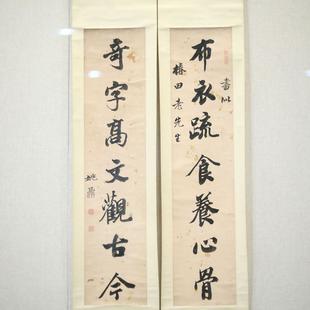 布衣疏食養心骨
書以
椿田老先生
奇字高文觀古今
姚鼐